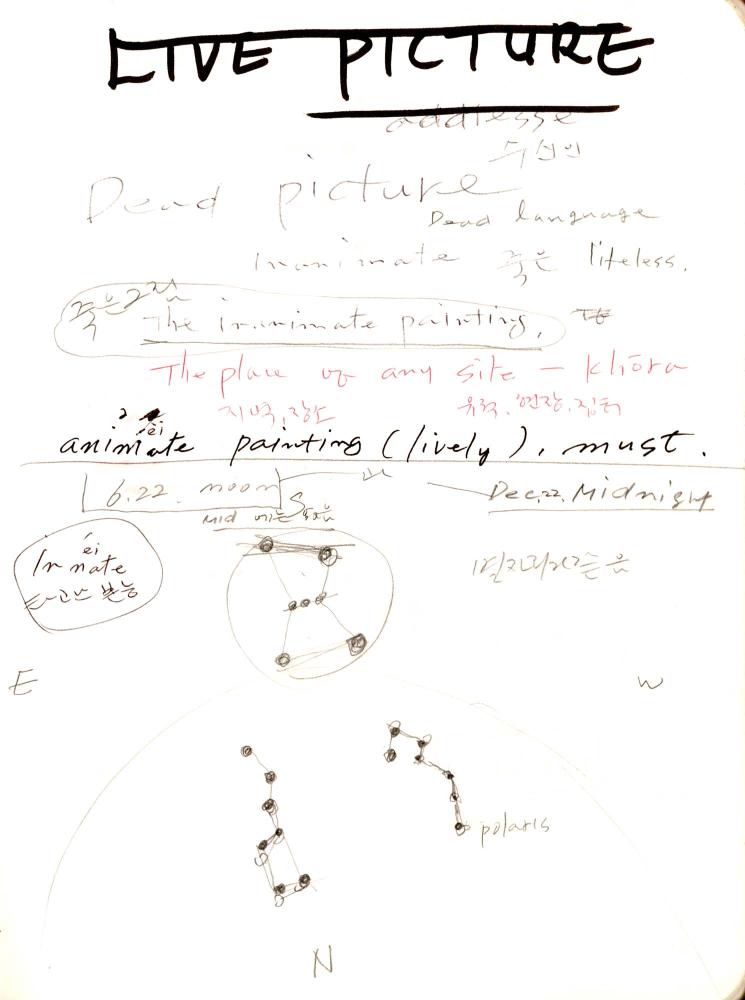 LIVE PICTURE
addlesse
수신인
Dead picture
Dead language
Inanimate 죽은 lifeless.
죽은그림
The inanimate painting,
The place of any site – Khōra
지역, 장소
유적, 현장, 집터
2 éi
animate painting (lively), must.
6.22. noon S
Dec.22. Midnight
Mid
éi
Innate
타고난 본능
E
W
polaris
N